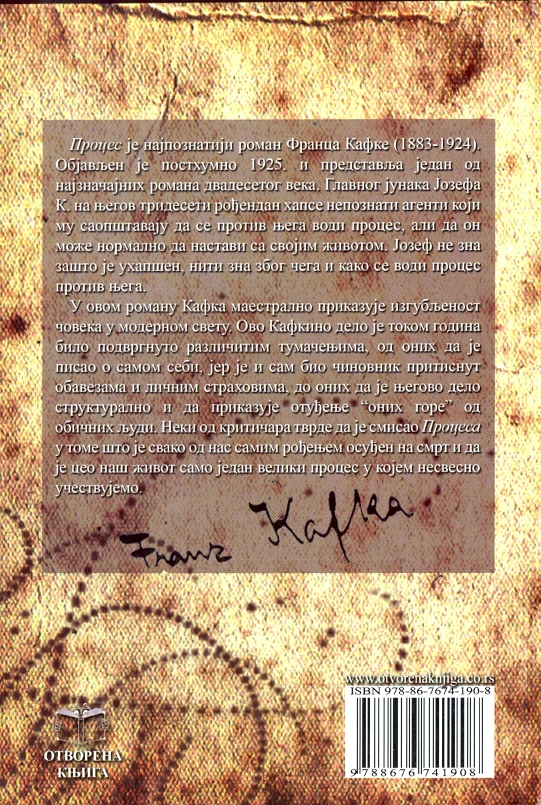 Процес је најпознатији роман Франца Кафке (1883-1924).
Објављен је постхумно 1925. и представља један од
најзначајних романа двадесетог века. Главног јунака Јозефа
К. на његов тридесети рођендан хапсе непознати агенти који
му саопштавају да се против њега води процес, али да он
може нормално да настави са својим животом. Јозеф не зна
зашто је ухапшен, нити зна због чега и како се води процес
против њега.
У овом роману Кафка маестрално приказује изгубљеност
човека у модерном свету. Ово Кафкино дело је током година
било подвргнуто различитим тумачењима, од оних да је
писао о самом себи, јер је и сам био чиновник притиснут
обавезама и личним страховима, до оних да је његово дело
структурално и да приказује отуђење “оних горе” од
обичних људи. Неки од критичара тврде да је смисао Процеса
у томе што је свако од нас самим рођењем осуђен на смрт и да
је цео наш живот само један велики процес у којем несвесно
учествујемо.
Franz Kafka
www.otvorenaknjiga.co.rs
ISBN 978-86-7674-190-8
9 788676 741908
ОТВОРЕНА
КЊИГА